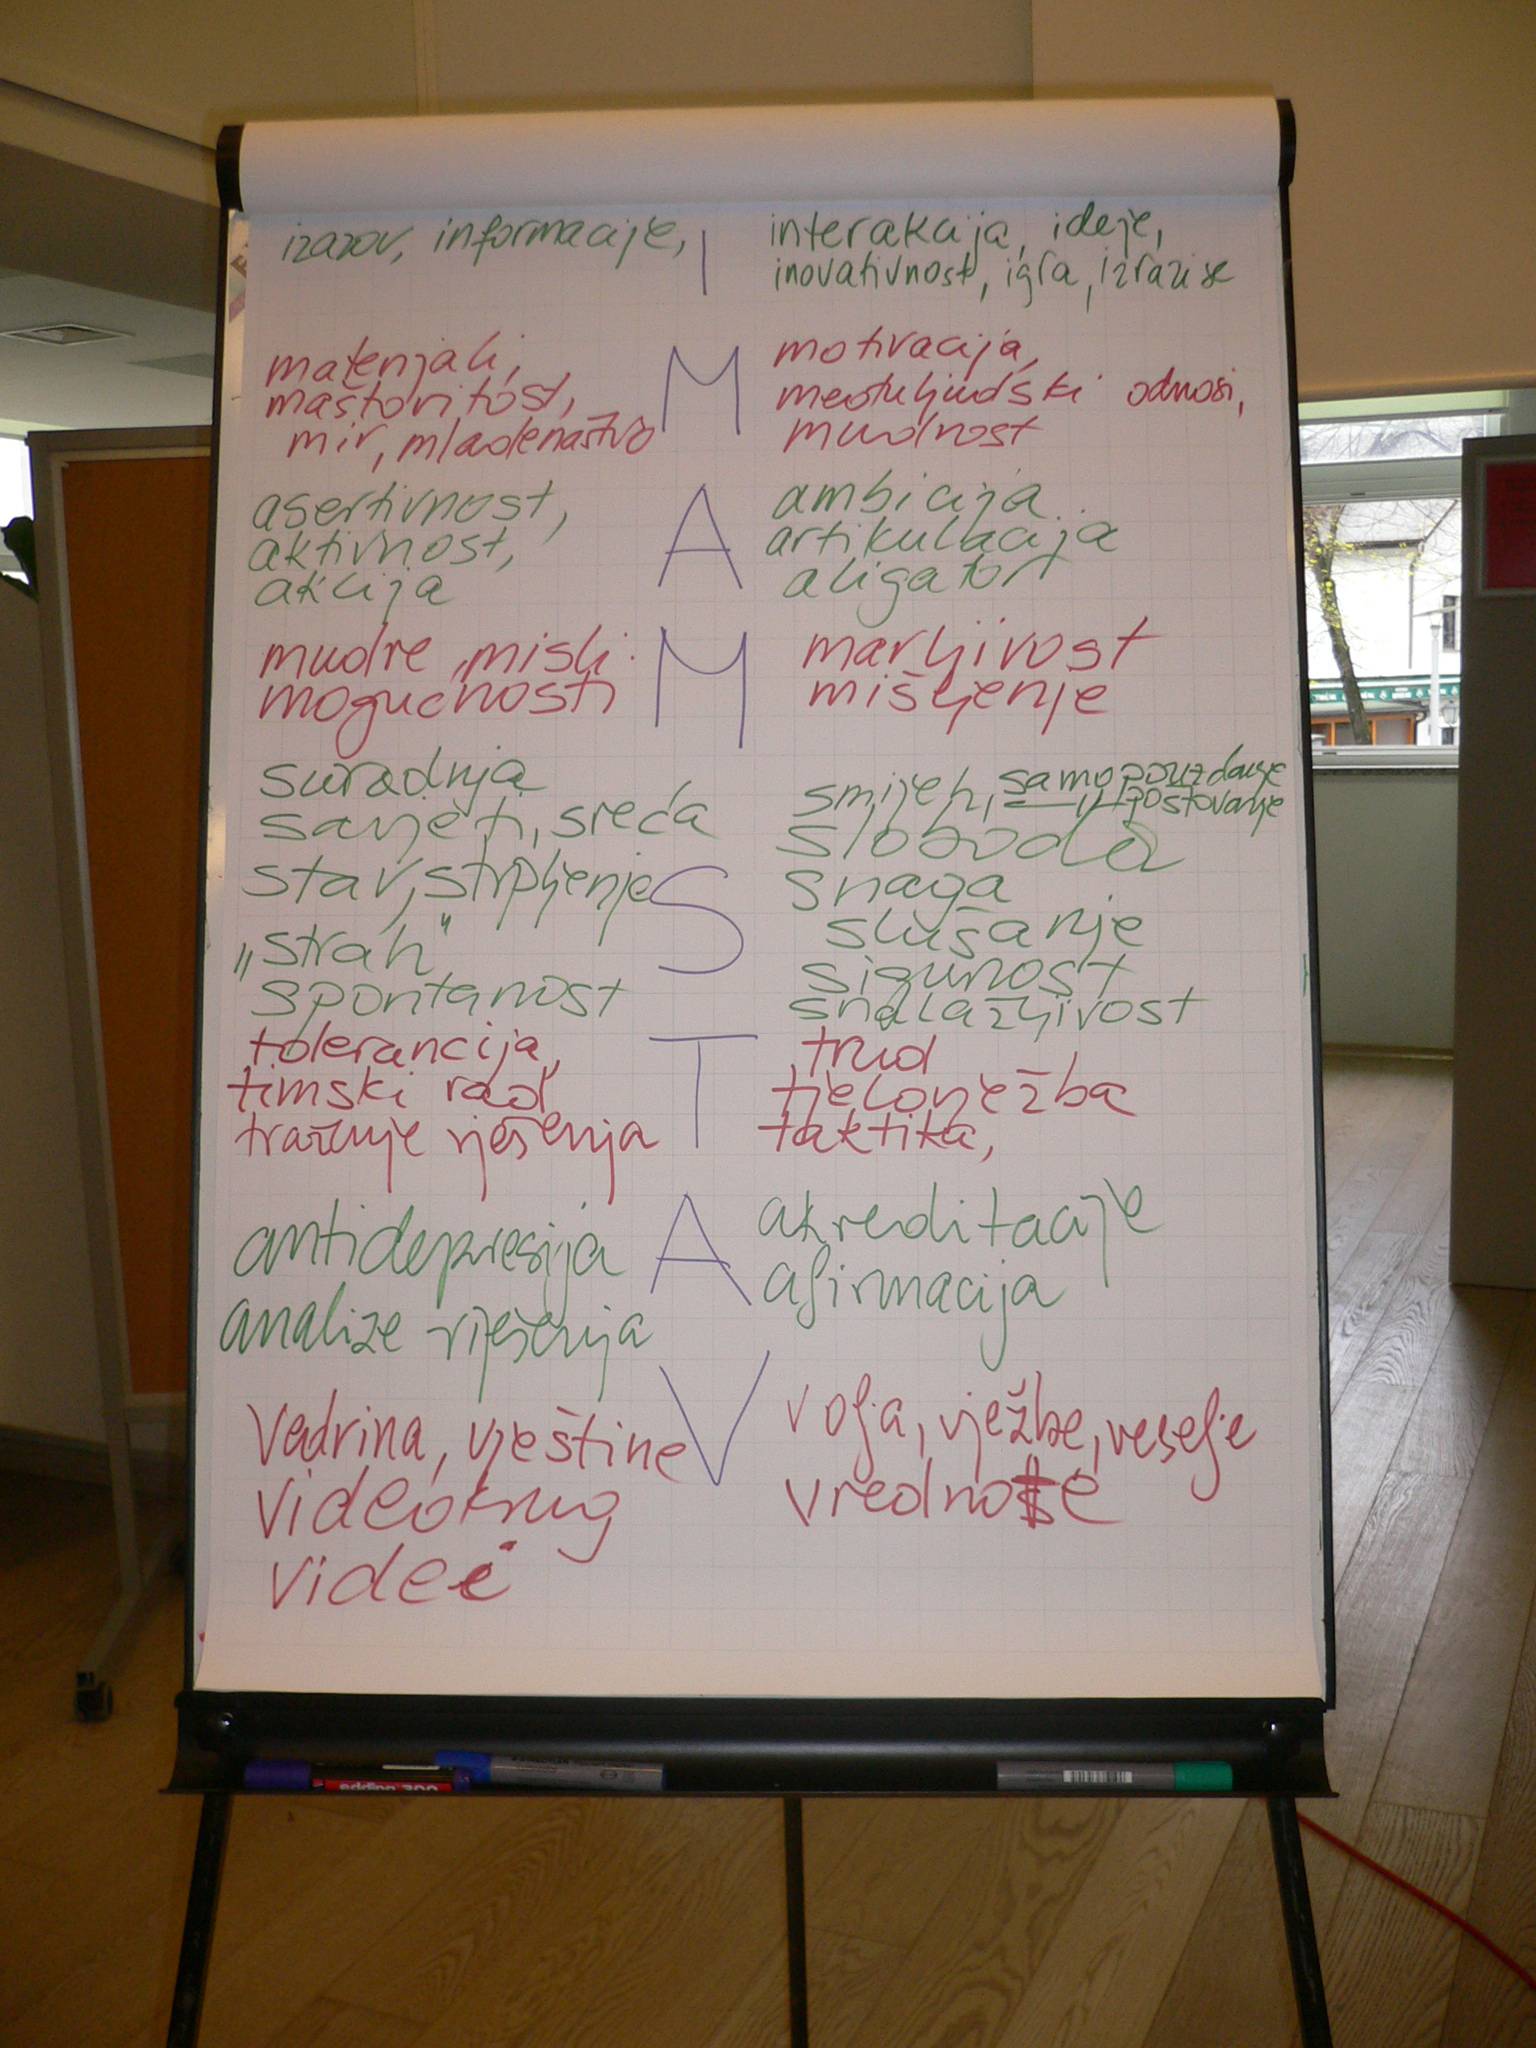 izazov, informacije, I interakcija, ideje,
inovativnost, igra, izrazi se
materijali, M motivacija,
maštovitost, međuljudski odnosi,
mir, mladenaštvo mudrost
asertivnost, A ambicija
aktivnost, artikulacija
akcija aligatori
mudre misli M marljivost
mogućnosti mišljenje
suradnja smijeh, samopouzdanje
savjeti, sreća -||- poštovanje
sloboda
stav, strpljenje S snaga
„strah" slušanje
sigurnost
spontanost snalažljivost
tolerancija, T trud
timski rad tjelovježba
traženje rješenja taktika,
antidepresija A akreditacije
analize rješenja afirmacija
Vedrina, vještine V volja, vježbe, veselje
videokrug vrednote
video
edding 300